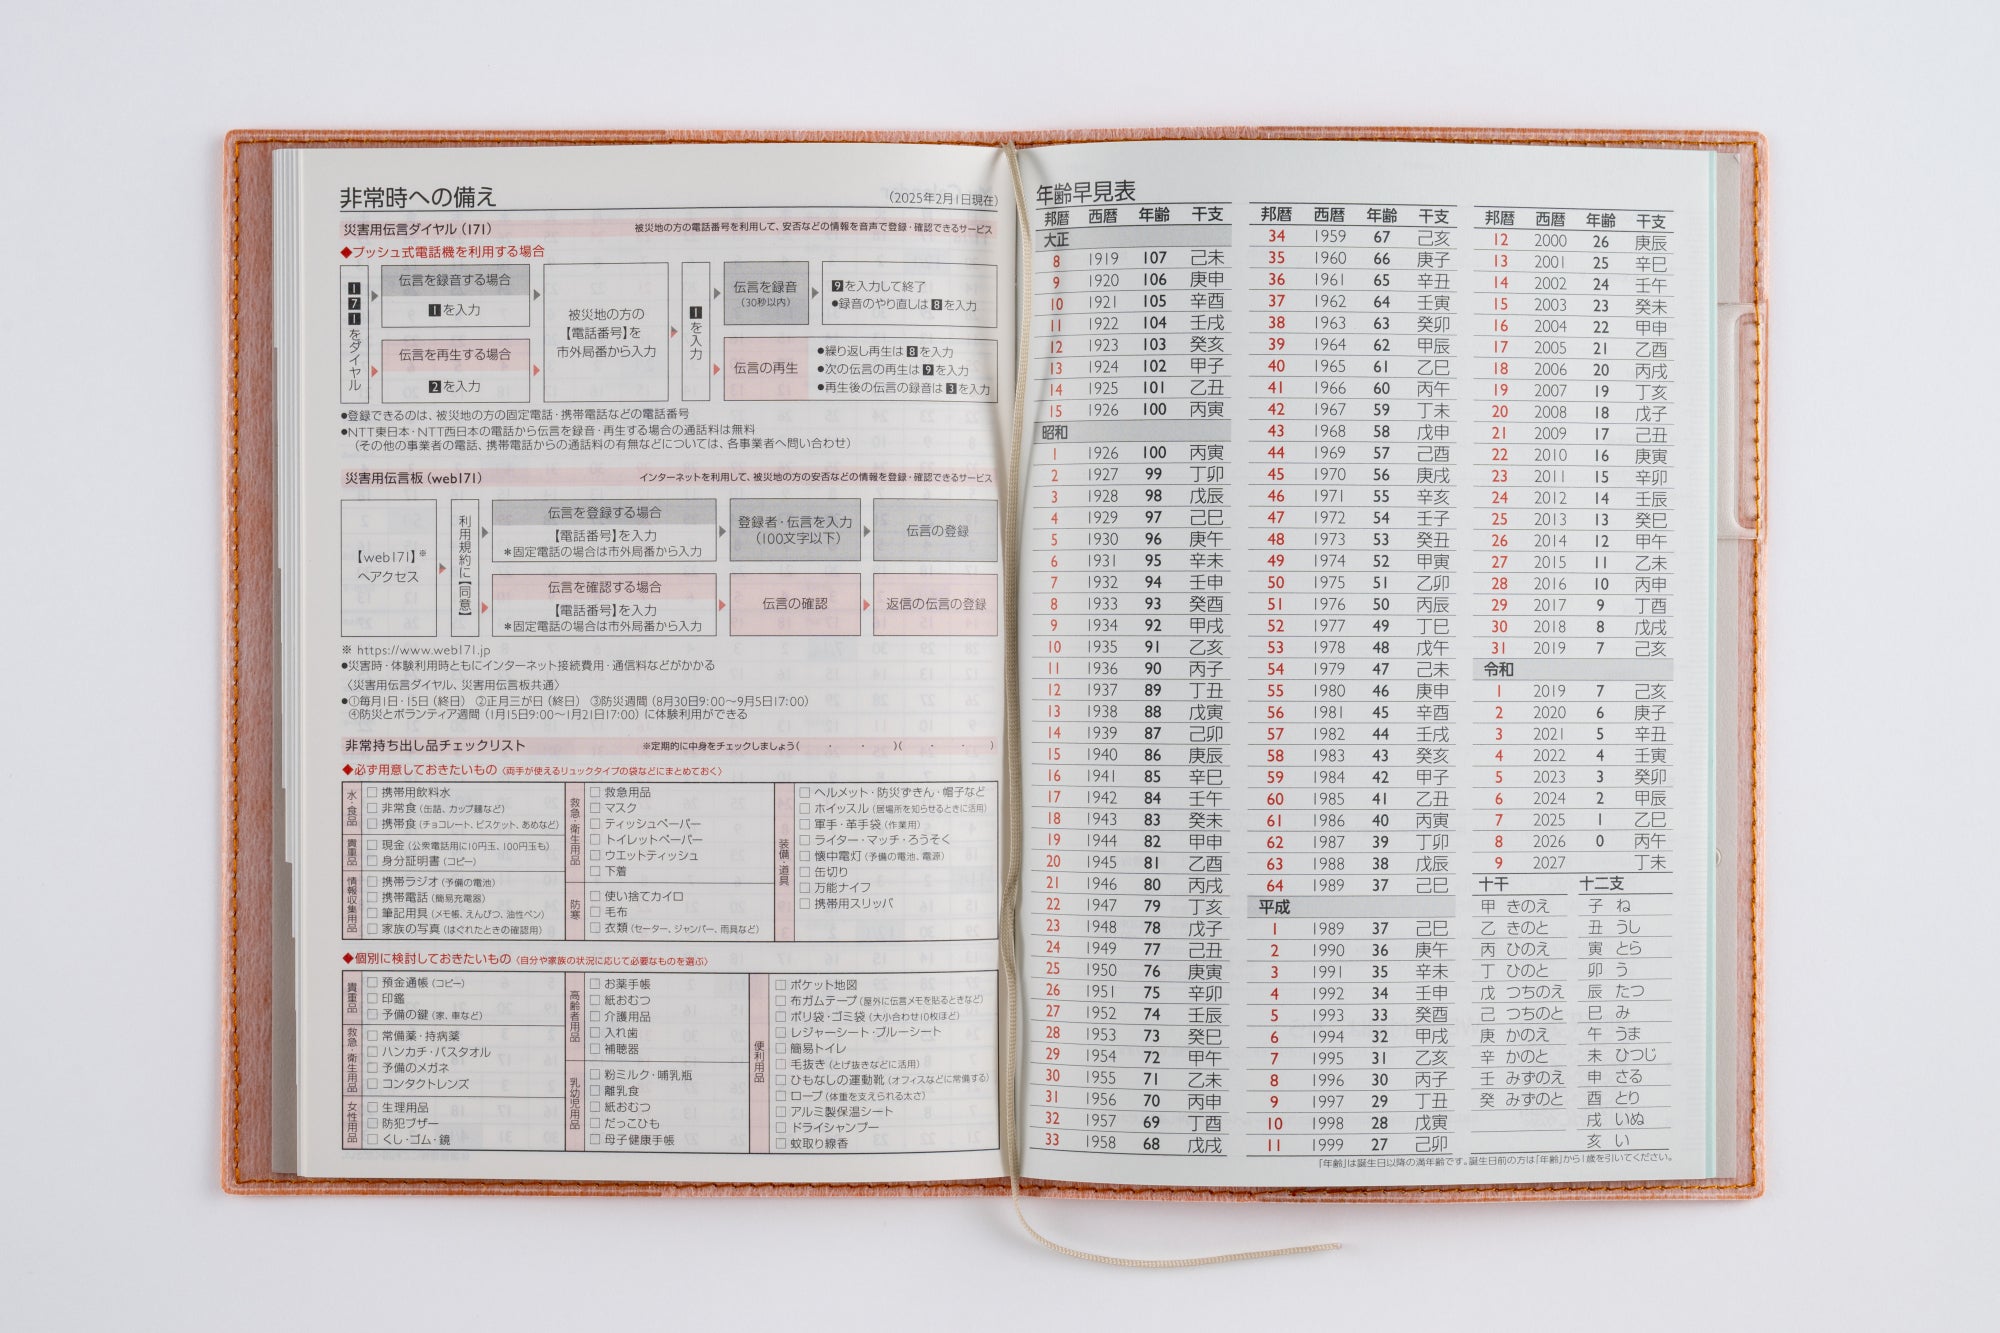 非常時への備え
(2025年2月1日現在)
災害用伝言ダイヤル(171)
被災地の方の電話番号を利用して、安否などの情報を音声で登録・確認できるサービス
◆プッシュ式電話機を利用する場合
171をダイヤル
伝言を録音する場合
1を入力
伝言を再生する場合
2を入力
被災地の方の
【電話番号】を
市外局番から入力
1を入力
伝言を録音
(30秒以内)
9を入力して終了
●録音のやり直しは8を入力
伝言の再生
●繰り返し再生は8を入力
●次の伝言の再生は9を入力
●再生後の伝言の録音は3を入力
●登録できるのは、被災地の方の固定電話・携帯電話などの電話番号
●NTT東日本・NTT西日本の電話から伝言を録音・再生する場合の通話料は無料
(その他の事業者の電話、携帯電話からの通話料の有無などについては、各事業者へ問い合わせ)
災害用伝言板(web171)
インターネットを利用して、被災地の方の安否などの情報を登録・確認できるサービス
【web171】※
へアクセス
利用規約に【同意】
伝言を登録する場合
【電話番号】を入力
*固定電話の場合は市外局番から入力
登録者・伝言を入力
(100文字以下)
伝言の登録
伝言を確認する場合
【電話番号】を入力
*固定電話の場合は市外局番から入力
伝言の確認
返信の伝言の登録
※ https://www.web171.jp
●災害時・体験利用時ともにインターネット接続費用・通信料などがかかる
〈災害用伝言ダイヤル、災害用伝言板共通〉
●①毎月1日・15日(終日) ②正月三が日(終日) ③防災週間(8月30日9:00〜9月5日17:00)
④防災とボランティア週間(1月15日9:00〜1月21日17:00)に体験利用ができる
非常持ち出し品チェックリスト
※定期的に中身をチェックしましょう( ・ ・ )( ・ ・ )
◆必ず用意しておきたいもの〈両手が使えるリュックタイプの袋などにまとめておく〉
水・食品
□携帯用飲料水
□非常食(缶詰、カップ麺など)
□携帯食(チョコレート、ビスケット、あめなど)
貴重品
□現金(公衆電話用に10円玉、100円玉も)
□身分証明書(コピー)
情報収集用品
□携帯ラジオ(予備の電池)
□携帯電話(簡易充電器)
□筆記用具(メモ帳、えんぴつ、油性ペン)
□家族の写真(はぐれたときの確認用)
救急・衛生用品
□救急用品
□マスク
□ティッシュペーパー
□トイレットペーパー
□ウエットティッシュ
□下着
防寒
□使い捨てカイロ
□毛布
□衣類(セーター、ジャンパー、雨具など)
装備・道具
□ヘルメット・防災ずきん・帽子など
□ホイッスル(居場所を知らせるときに活用)
□軍手・革手袋(作業用)
□ライター・マッチ・ろうそく
□懐中電灯(予備の電池、電源)
□缶切り
□万能ナイフ
□携帯用スリッパ
◆個別に検討しておきたいもの〈自分や家族の状況に応じて必要なものを選ぶ〉
貴重品
□預金通帳(コピー)
□印鑑
□予備の鍵(家、車など)
救急・衛生用品
□常備薬・持病薬
□ハンカチ・バスタオル
□予備のメガネ
□コンタクトレンズ
女性用品
□生理用品
□防犯ブザー
□くし・ゴム・鏡
高齢者用品
□お薬手帳
□紙おむつ
□介護用品
□入れ歯
□補聴器
乳幼児用品
□粉ミルク・哺乳瓶
□離乳食
□紙おむつ
□だっこひも
□母子健康手帳
便利用品
□ポケット地図
□布ガムテープ(屋外に伝言メモを貼るときなど)
□ポリ袋・ゴミ袋(大小合わせ10枚ほど)
□レジャーシート・ブルーシート
□簡易トイレ
□毛抜き(とげ抜きなどに活用)
□ひもなしの運動靴(オフィスなどに常備する)
□ロープ(体重を支えられる太さ)
□アルミ製保温シート
□ドライシャンプー
□蚊取り線香
年齢早見表
邦暦 西暦 年齢 干支
大正
8 1919 107 己未
9 1920 106 庚申
10 1921 105 辛酉
11 1922 104 壬戌
12 1923 103 癸亥
13 1924 102 甲子
14 1925 101 乙丑
15 1926 100 丙寅
昭和
1 1926 100 丙寅
2 1927 99 丁卯
3 1928 98 戊辰
4 1929 97 己巳
5 1930 96 庚午
6 1931 95 辛未
7 1932 94 壬申
8 1933 93 癸酉
9 1934 92 甲戌
10 1935 91 乙亥
11 1936 90 丙子
12 1937 89 丁丑
13 1938 88 戊寅
14 1939 87 己卯
15 1940 86 庚辰
16 1941 85 辛巳
17 1942 84 壬午
18 1943 83 癸未
19 1944 82 甲申
20 1945 81 乙酉
21 1946 80 丙戌
22 1947 79 丁亥
23 1948 78 戊子
24 1949 77 己丑
25 1950 76 庚寅
26 1951 75 辛卯
27 1952 74 壬辰
28 1953 73 癸巳
29 1954 72 甲午
30 1955 71 乙未
31 1956 70 丙申
32 1957 69 丁酉
33 1958 68 戊戌
邦暦 西暦 年齢 干支
34 1959 67 己亥
35 1960 66 庚子
36 1961 65 辛丑
37 1962 64 壬寅
38 1963 63 癸卯
39 1964 62 甲辰
40 1965 61 乙巳
41 1966 60 丙午
42 1967 59 丁未
43 1968 58 戊申
44 1969 57 己酉
45 1970 56 庚戌
46 1971 55 辛亥
47 1972 54 壬子
48 1973 53 癸丑
49 1974 52 甲寅
50 1975 51 乙卯
51 1976 50 丙辰
52 1977 49 丁巳
53 1978 48 戊午
54 1979 47 己未
55 1980 46 庚申
56 1981 45 辛酉
57 1982 44 壬戌
58 1983 43 癸亥
59 1984 42 甲子
60 1985 41 乙丑
61 1986 40 丙寅
62 1987 39 丁卯
63 1988 38 戊辰
64 1989 37 己巳
平成
1 1989 37 己巳
2 1990 36 庚午
3 1991 35 辛未
4 1992 34 壬申
5 1993 33 癸酉
6 1994 32 甲戌
7 1995 31 乙亥
8 1996 30 丙子
9 1997 29 丁丑
10 1998 28 戊寅
11 1999 27 己卯
邦暦 西暦 年齢 干支
12 2000 26 庚辰
13 2001 25 辛巳
14 2002 24 壬午
15 2003 23 癸未
16 2004 22 甲申
17 2005 21 乙酉
18 2006 20 丙戌
19 2007 19 丁亥
20 2008 18 戊子
21 2009 17 己丑
22 2010 16 庚寅
23 2011 15 辛卯
24 2012 14 壬辰
25 2013 13 癸巳
26 2014 12 甲午
27 2015 11 乙未
28 2016 10 丙申
29 2017 9 丁酉
30 2018 8 戊戌
31 2019 7 己亥
令和
1 2019 7 己亥
2 2020 6 庚子
3 2021 5 辛丑
4 2022 4 壬寅
5 2023 3 癸卯
6 2024 2 甲辰
7 2025 1 乙巳
8 2026 0 丙午
9 2027 丁未
十干 十二支
甲 きのえ 子 ね
乙 きのと 丑 うし
丙 ひのえ 寅 とら
丁 ひのと 卯 う
戊 つちのえ 辰 たつ
己 つちのと 巳 み
庚 かのえ 午 うま
辛 かのと 未 ひつじ
壬 みずのえ 申 さる
癸 みずのと 酉 とり
戌 いぬ
亥 い
「年齢」は誕生日以降の満年齢です。誕生日前の方は「年齢」から1歳を引いてください。